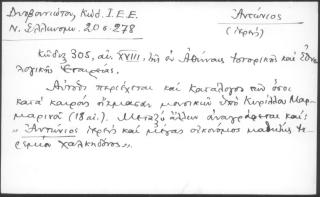 Δυοβουνιώτου, Κώδ. Ι.Ε.Ε.
Ν. Ελληνομν. 20 σ. 278
Ἀντώνιος
(ἱερεύς)
Κῶδιξ 305, αἰ. XVIII, τῆς ἐν Ἀθήναις Ἱστορικῆς καὶ Ἐθνο
λογικῆς Ἑταιρείας.
Αὐτόθι περιέχεται καὶ Κατάλογος τῶν ὅσοι
κατὰ καιροὺς ἤκμασαν μουσικοὶ ὑπὸ Κυρίλλου Μαρ
μαρινοῦ (18 αἰ.). Μεταξὺ ἄλλων ἀναγράφεται καί:
„Ἀντώνιος ἱερεὺς καὶ μέγας οἰκονόμος μαθητὴς Ἱε
ρεμίου Χαλκηδόνος".